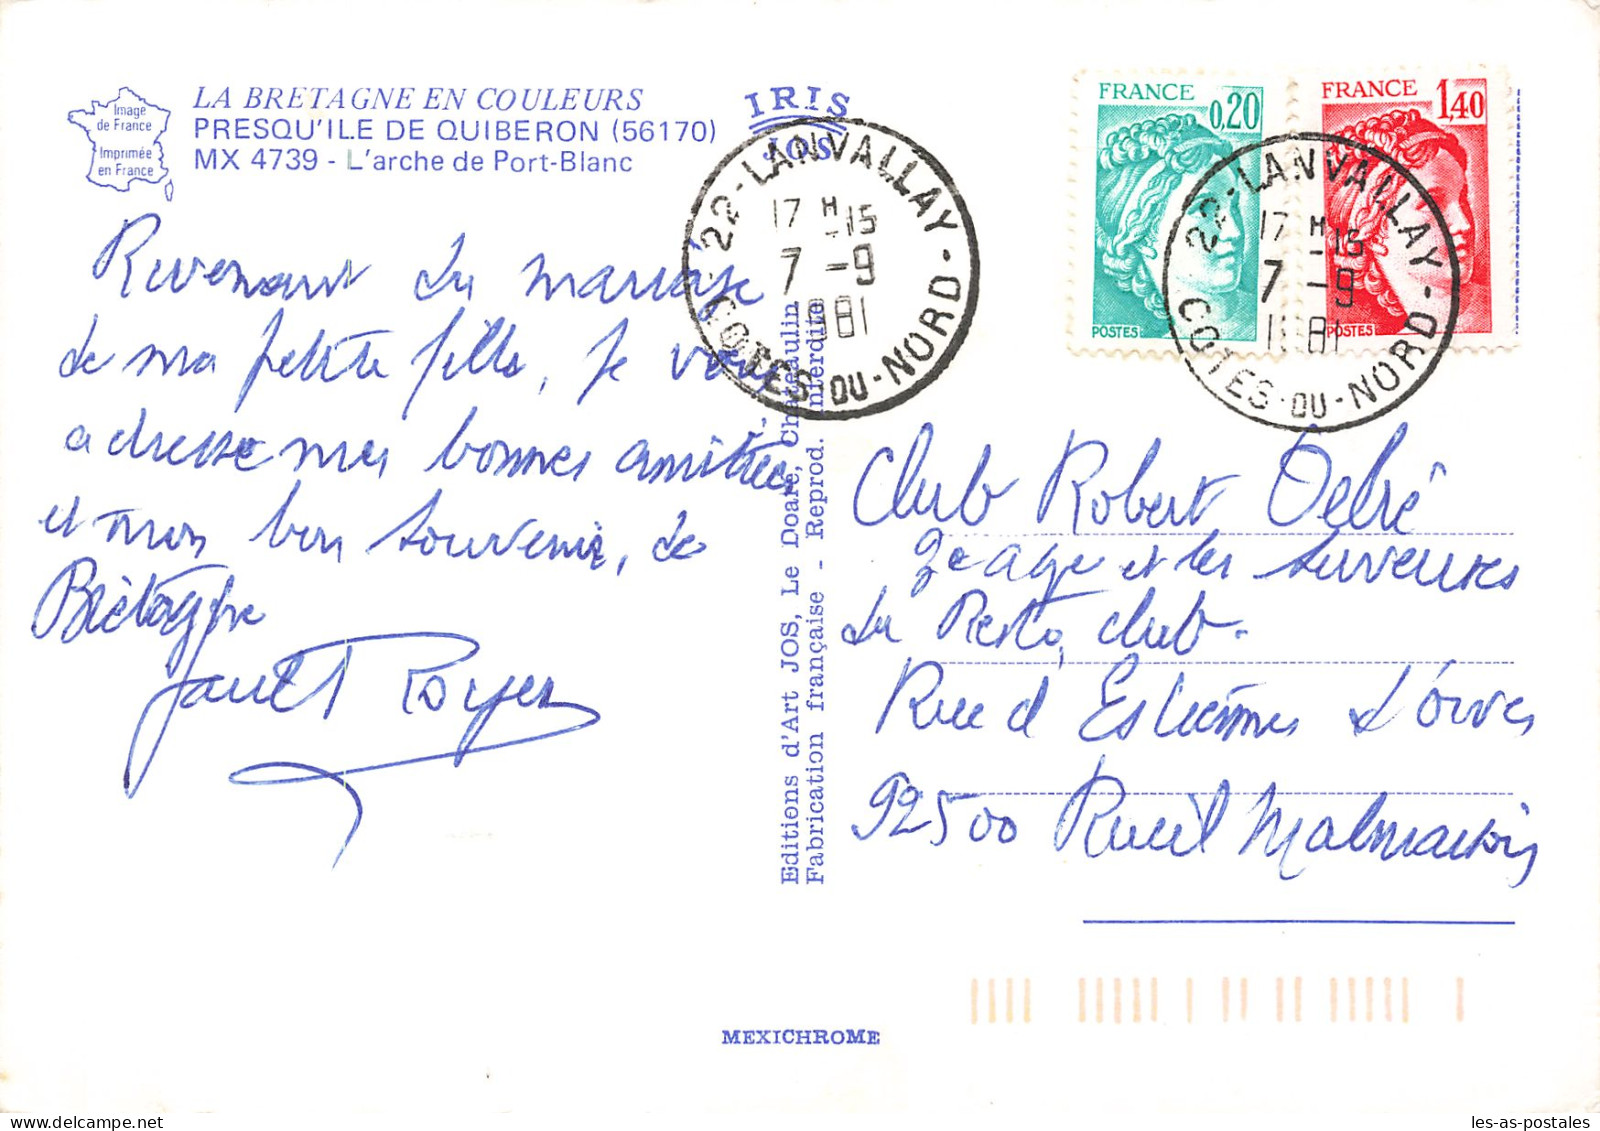 Image
de France
Imprimée
en France
LA BRETAGNE EN COULEURS
PRESQU'ILE DE QUIBERON (56170)
MX 4739 - L'arche de Port-Blanc
IRIS
JOS
22 - LANVALLAY
17 H -15
7 -9
1981
COTES-DU-NORD
FRANCE
0,20
POSTES
FRANCE
1,40
POSTES
22 - LANVALLAY
17 H -15
7 -9
1981
COTES-DU-NORD
Revenant du mariage
de ma petite fille, je vous
adresse mes bonnes amitiés
et mon bon souvenir, de
Bretagne
Royer
Editions d'Art JOS, Le Doaré, Chateaulin
Fabrication française - Reprod. interdite
Club Robert Debré
3e age et les serveuses
du Resto, club.
Rue d'Estiennes d'Orves
92500 Rueil Malmaison
MEXICHROME
les-as-postales